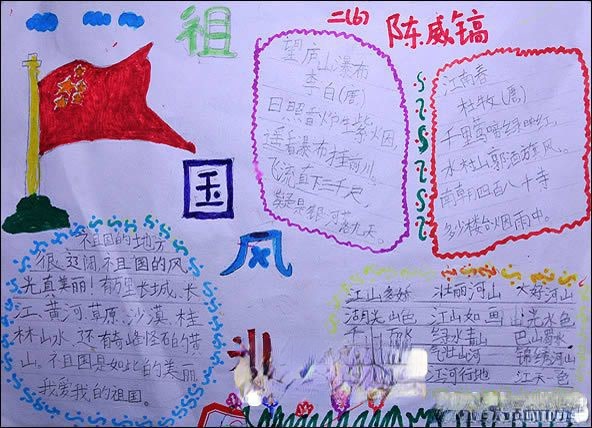 祖
国
风
二(6)
陈威镐
望庐山瀑布
李白(唐)
日照香炉生紫烟
遥看瀑布挂前川。
飞流直下三千尺,
疑是银河落九天。
江南春
杜牧(唐)
千里莺啼绿映红,
水村山郭酒旗风。
南朝四百八十寺
多少楼台烟雨中。
祖国的地方
很辽阔,祖国的风
光真美丽!有万里长城、长
江、黄河、草原、沙漠、桂
林山水、还有奇峰怪石的黄
山。祖国是如此的美丽
我爱我的祖国。
江山多娇 壮丽河山 大好河山
湖光山色 江山如画 山光水色
千山 绿水青山 巴山蜀水
气壮山河 锦绣河山
江河行地 江天一色